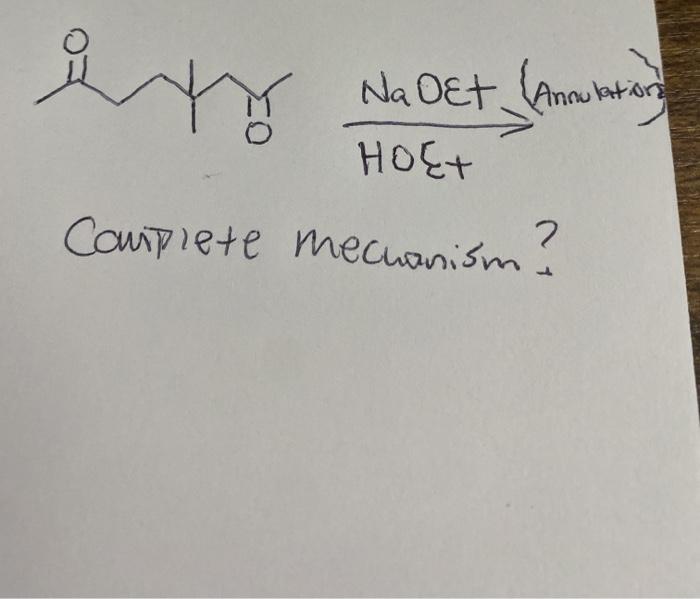 O
NaOEt (Annulation)
O
HOEt
Complete mechanism?